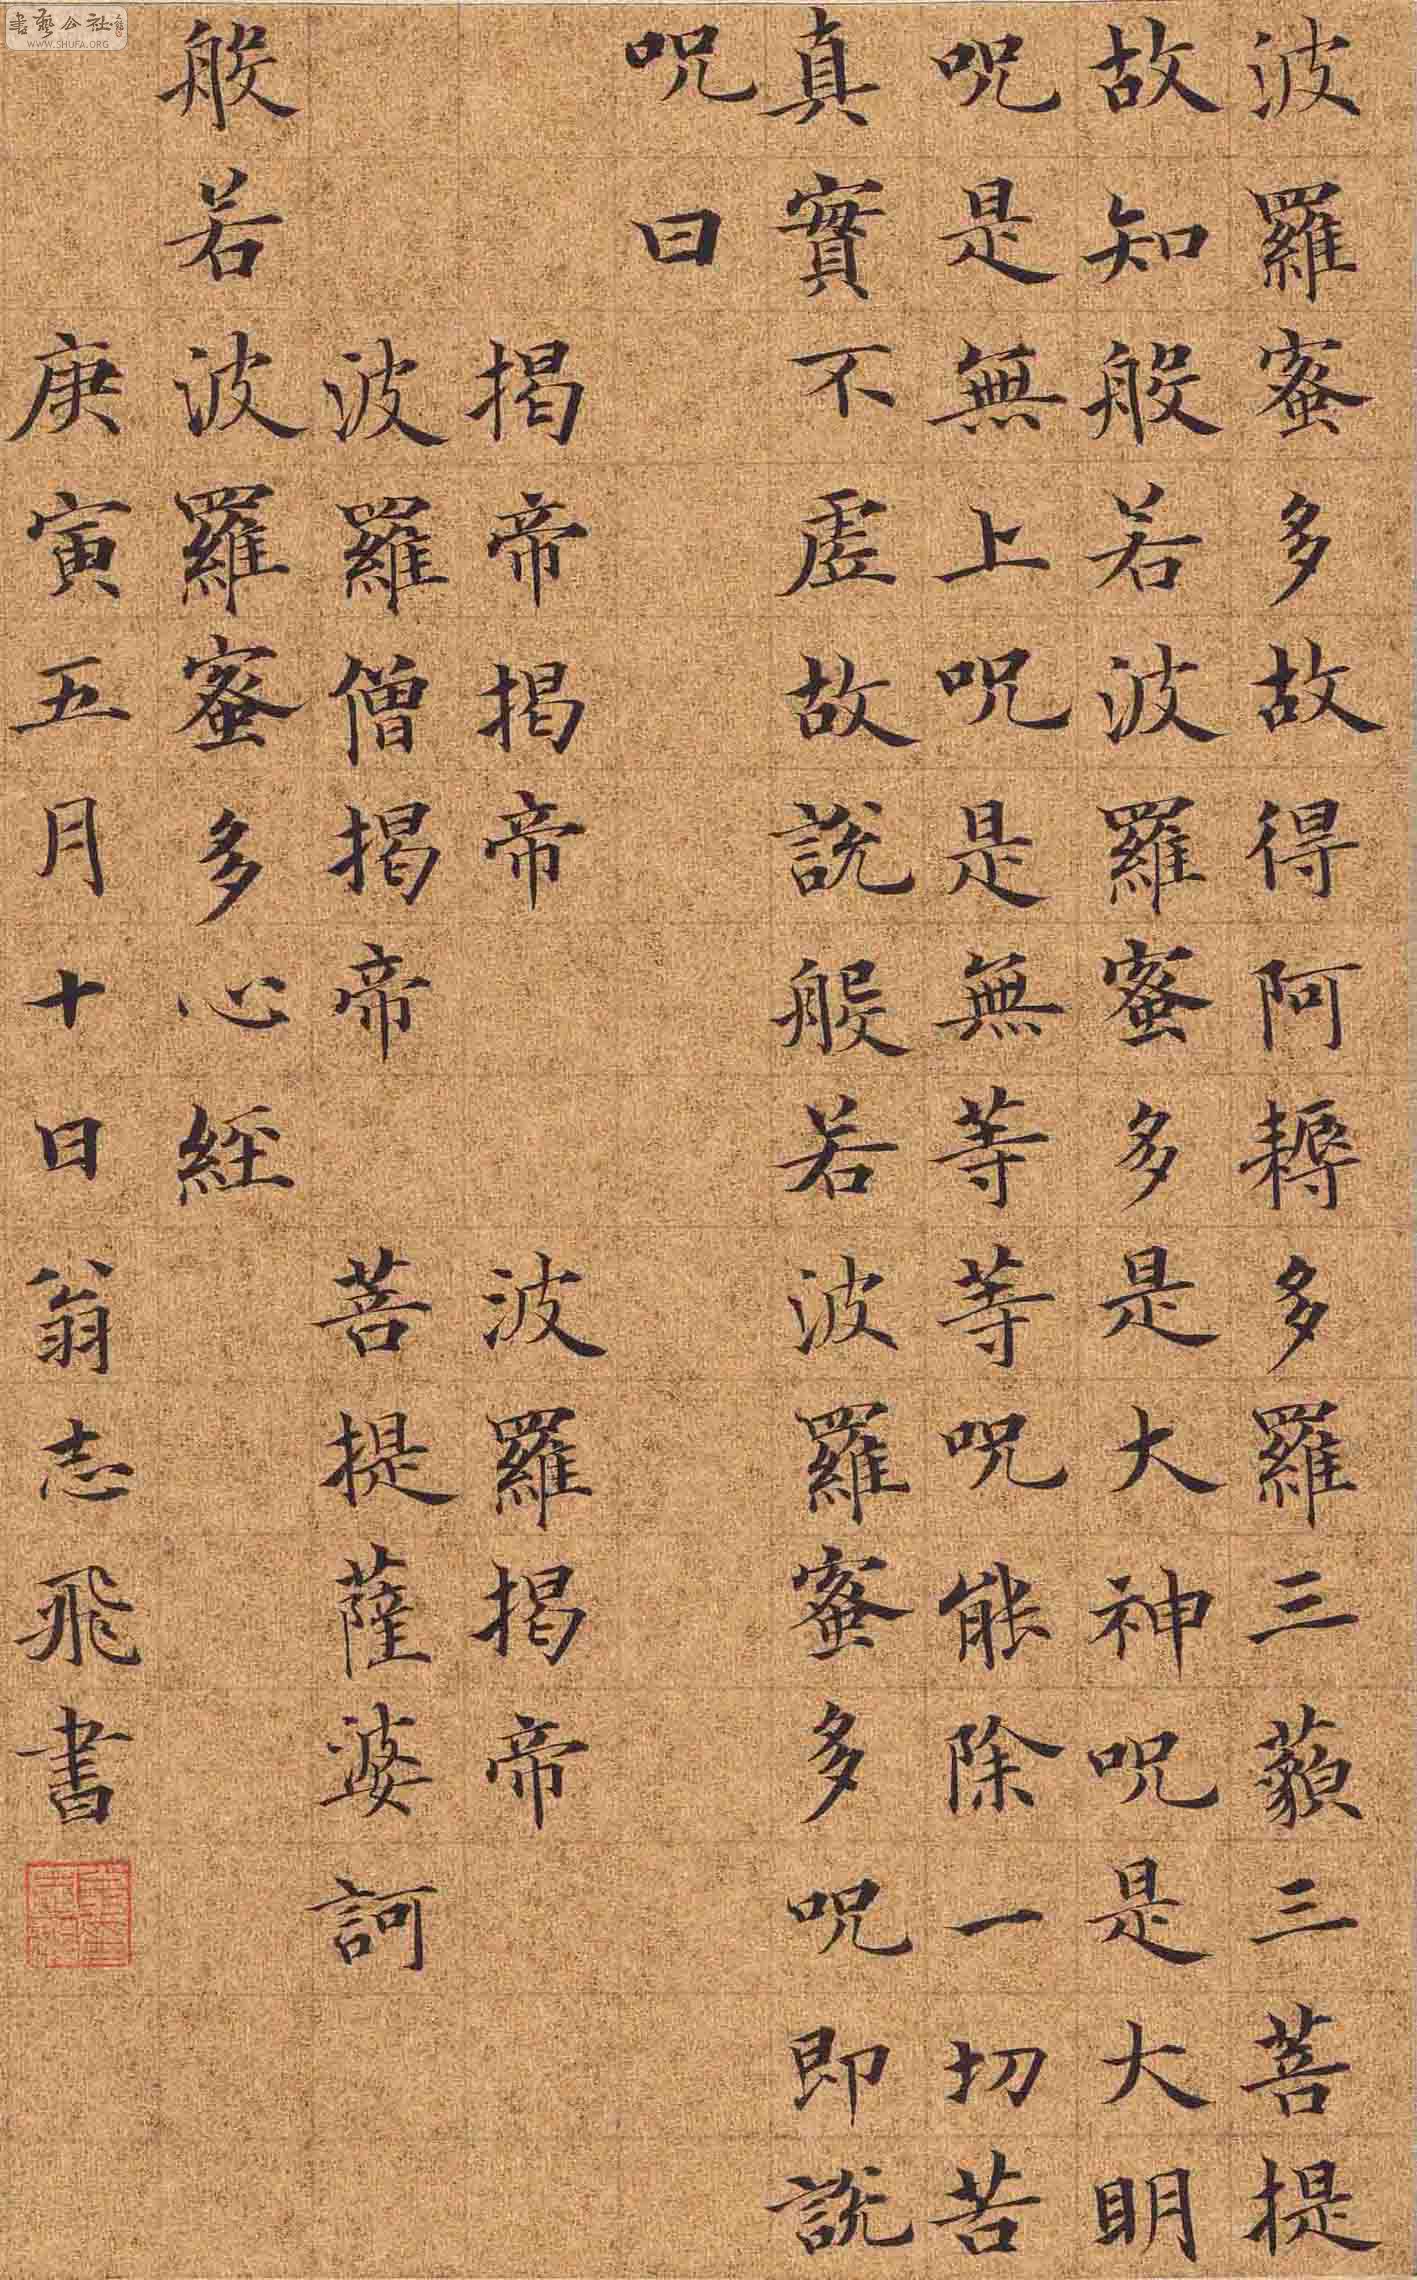 波羅蜜多故得阿耨多羅三藐三菩提
故知般若波羅蜜多是大神呪是大明
呪是無上呪是無等等呪能除一切苦
真實不虛故說般若波羅蜜多呪即說
呪曰
揭帝揭帝 波羅揭帝
波羅僧揭帝 菩提薩婆訶
般若波羅蜜多心經
庚寅五月十日翁志飛書
書藝公社
WWW.SHUFA.ORG